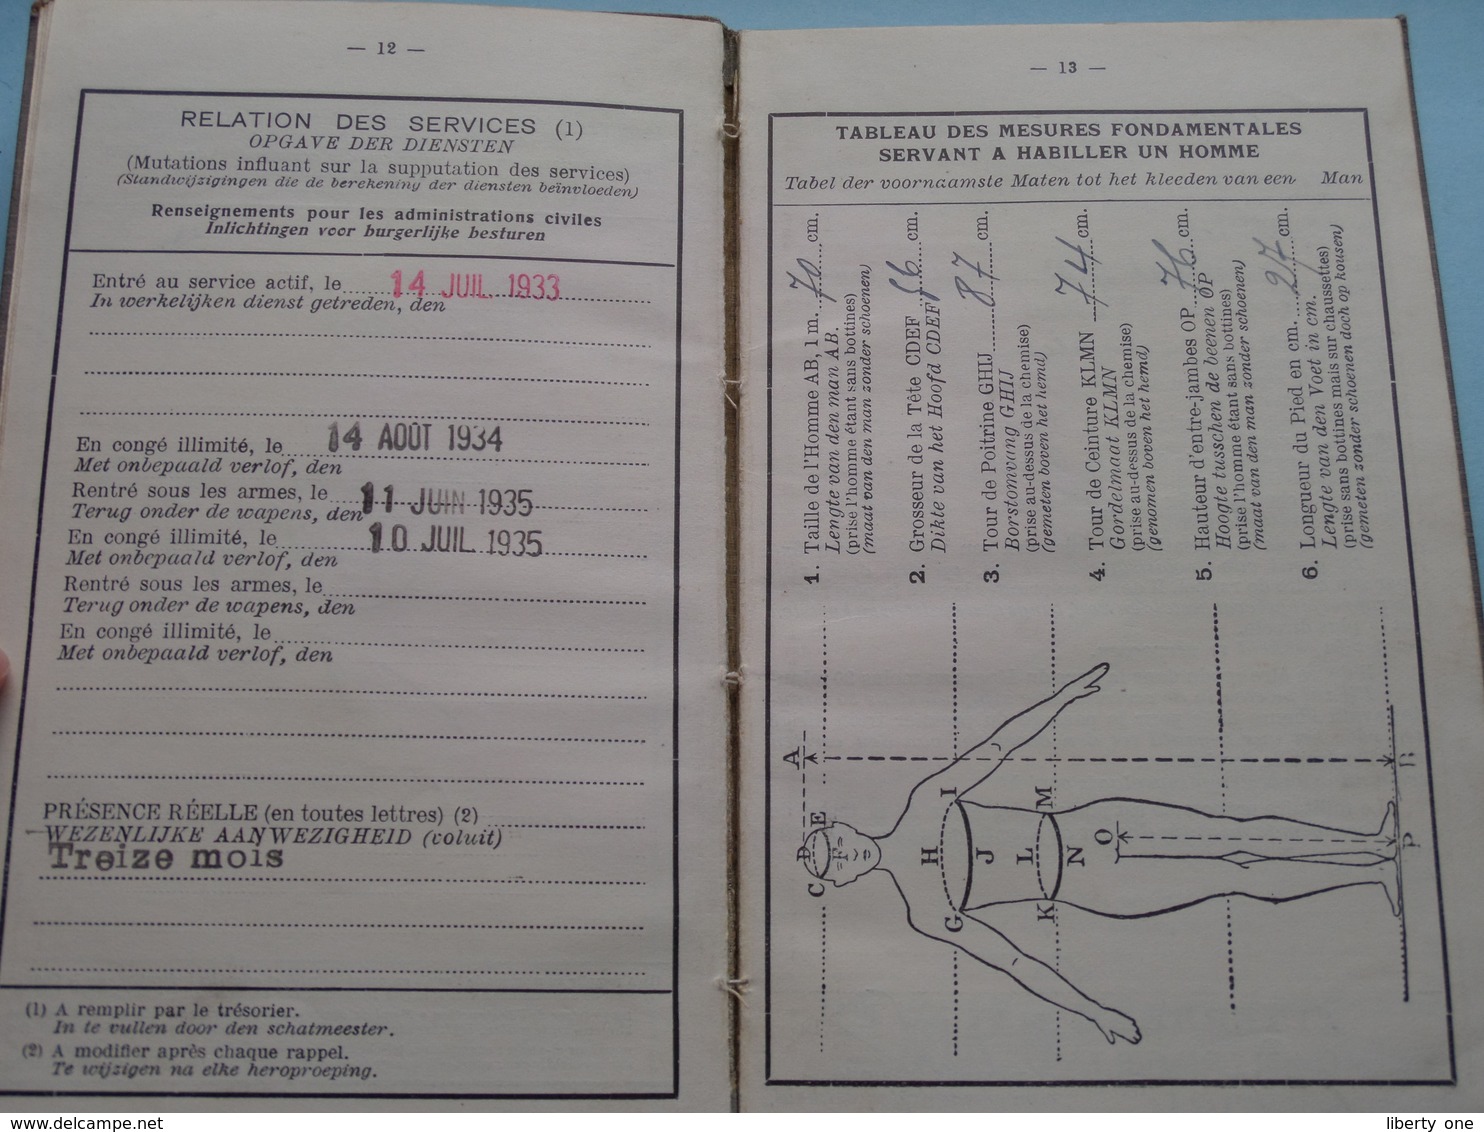 — 12 —
RELATION DES SERVICES (1)
OPGAVE DER DIENSTEN
(Mutations influant sur la supputation des services)
(Standwijzigingen die de berekening der diensten beïnvloeden)
Renseignements pour les administrations civiles
Inlichtingen voor burgerlijke besturen
Entré au service actif, le 14 JUIL 1933
In werkelijken dienst getreden, den
En congé illimité, le 14 AOÛT 1934
Met onbepaald verlof, den
Rentré sous les armes, le 11 JUIN 1935
Terug onder de wapens, den
En congé illimité, le 10 JUIL 1935
Met onbepaald verlof, den
Rentré sous les armes, le
Terug onder de wapens, den
En congé illimité, le
Met onbepaald verlof, den
PRÉSENCE RÉELLE (en toutes lettres) (2)
WEZENLIJKE AANWEZIGHEID (voluit)
Treize mois
(1) A remplir par le trésorier.
In te vullen door den schatmeester.
(2) A modifier après chaque rappel.
Te wijzigen na elke heroproeping.
— 13 —
TABLEAU DES MESURES FONDAMENTALES
SERVANT A HABILLER UN HOMME
Tabel der voornaamste Maten tot het kleeden van een Man
1. Taille de l'Homme AB, 1 m. 70 cm.
Lengte van den man AB.
(prise l'homme étant sans bottines)
(maat van den man zonder schoenen)
2. Grosseur de la Tête CDEF 56 cm.
Dikte van het Hoofd CDEF
3. Tour de Poitrine GHIJ 87 cm.
Borstomvang GHIJ
(prise au-dessus de la chemise)
(gemeten boven het hemd)
4. Tour de Ceinture KLMN 74 cm.
Gordelmaat KLMN
(prise au-dessus de la chemise)
(genomen boven het hemd)
5. Hauteur d'entre-jambes OP 76 cm.
Hoogte tusschen de beenen OP
(prise l'homme étant sans bottines)
(maat van den man zonder schoenen)
6. Longueur du Pied en cm. 27 cm.
Lengte van den Voet in cm.
(prise sans bottines mais sur chaussettes)
(gemeten zonder schoenen doch op kousen)
A
B
C
D
E
F
G
H
I
J
K
L
M
N
O
P
liberty one